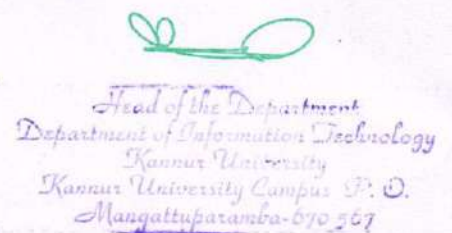 Head of the Department
Department of Information Technology
Kannur University
Kannur University Campus P. O.
Mangattuparamba-670 567